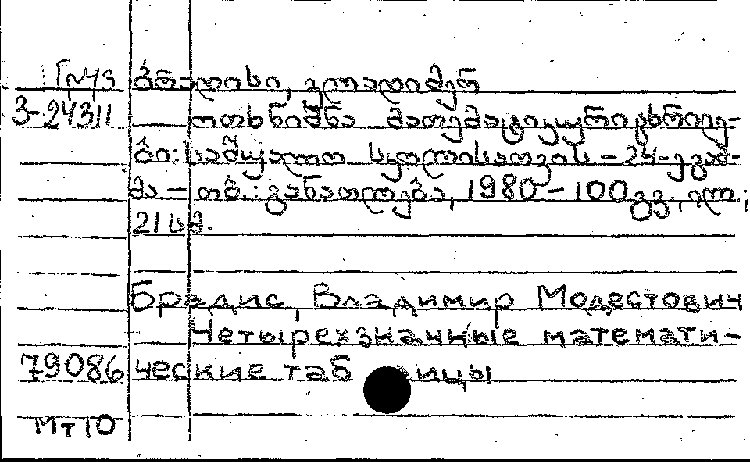 ბრადისი, ვლადიმერ
3-24311 ოთხნიშნა მათემატიკური ცხრილე-
ბი: საშუალო სკოლისათვის – 24-ე გამ-
ცა – თბ.: განათლება, 1980 – 100 გვ., ილ.;
21 სმ.
Брадис, Владимир Модестович
Четырехзначные математи-
79086 ческие таб ицы
Мт 10